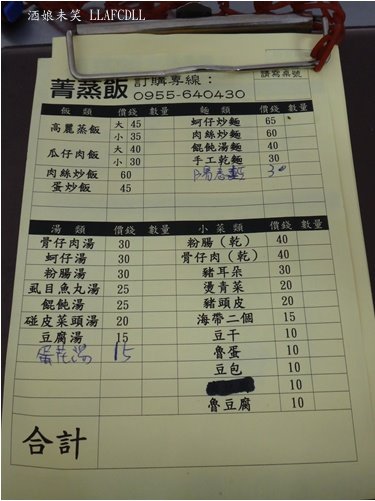 酒娘未笑 LLAFCDLL
菁蒸飯 訂購專線：0955-640430
請寫桌號
飯類 價錢 數量 麵類 價錢 數量
高麗蒸飯 大 45 蚵仔炒麵 65
小 35 肉絲炒麵 60
瓜仔肉飯 大 40 餛飩湯麵 40
小 30 手工乾麵 30
肉絲炒飯 60 陽春麵 30
蛋炒飯 45
湯類 價錢 數量 小菜類 價錢 數量
骨仔肉湯 30 粉腸(乾) 40
蚵仔湯 30 骨仔肉(乾) 40
粉腸湯 30 豬耳朵 30
虱目魚丸湯 25 燙青菜 20
餛飩湯 25 豬頭皮 20
碰皮菜頭湯 20 海帶二個 15
豆腐湯 15 豆干 10
蛋花湯 15 魯蛋 10
豆包 10
10
魯豆腐 10
合計